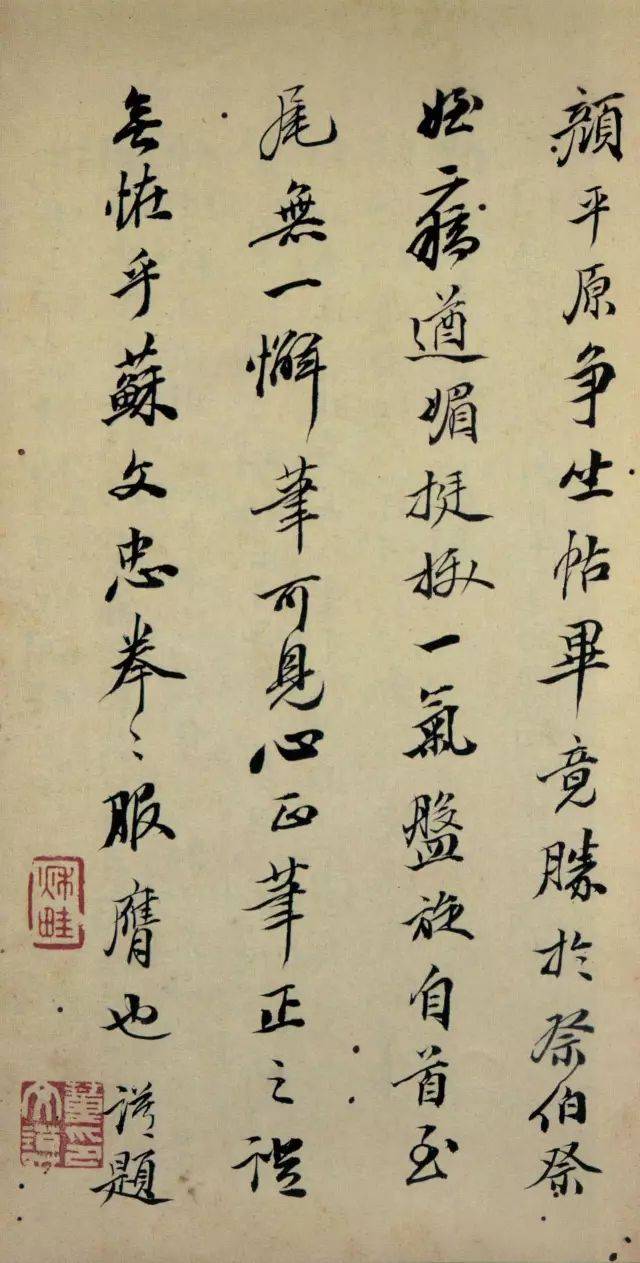 顏平原争坐帖畢竟勝於祭伯祭
姪二稿遒媚挺拔一氣盤旋自首至
尾無一懈筆可見心正筆正之說
無恠乎蘇文忠拳〻服膺也 誥題
秫畦